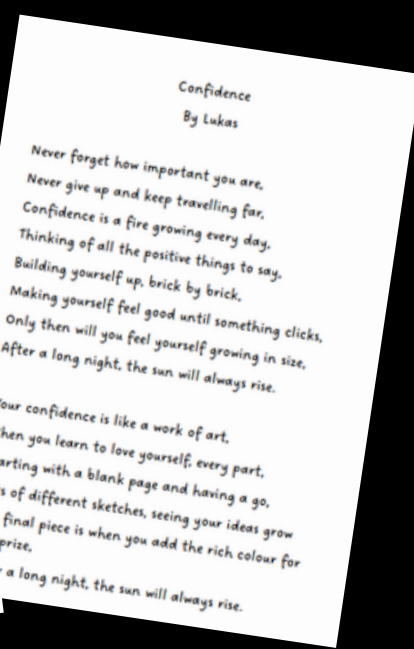 Confidence
By Lukas
Never forget how important you are,
Never give up and keep travelling far,
Confidence is a fire growing every day,
Thinking of all the positive things to say,
Building yourself up, brick by brick,
Making yourself feel good until something clicks,
Only then will you feel yourself growing in size,
After a long night, the sun will always rise.
confidence is like a work of art,
you learn to love yourself, every part,
with a blank page and having a go,
of different sketches, seeing your ideas grow
final piece is when you add the rich colour for
prize,
a long night, the sun will always rise.